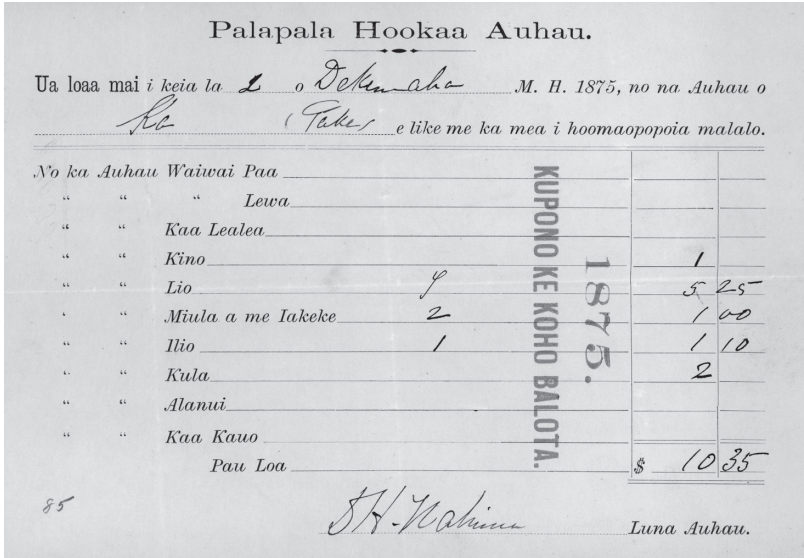 Palapala Hookaa Auhau.
Ua loaa mai i keia la 2 o Dekemaba M. H. 1875, no na Auhau o
Ka e like me ka mea i hoomaopopoia malalo.
No ka Auhau Waiwai Paa
“ “ “ Lewa
“ “ Kaa Lealea
“ “ Kino 1
“ “ Lio 5 25
“ “ Miula a me Iakeke 2 1 00
“ “ Ilio 1 1 10
“ “ Kula 2
“ “ Alanui
“ “ Kaa Kauo
Pau Loa $ 10 35
KUPONO KE KOHO BALOTA.
1875.
85
Luna Auhau.